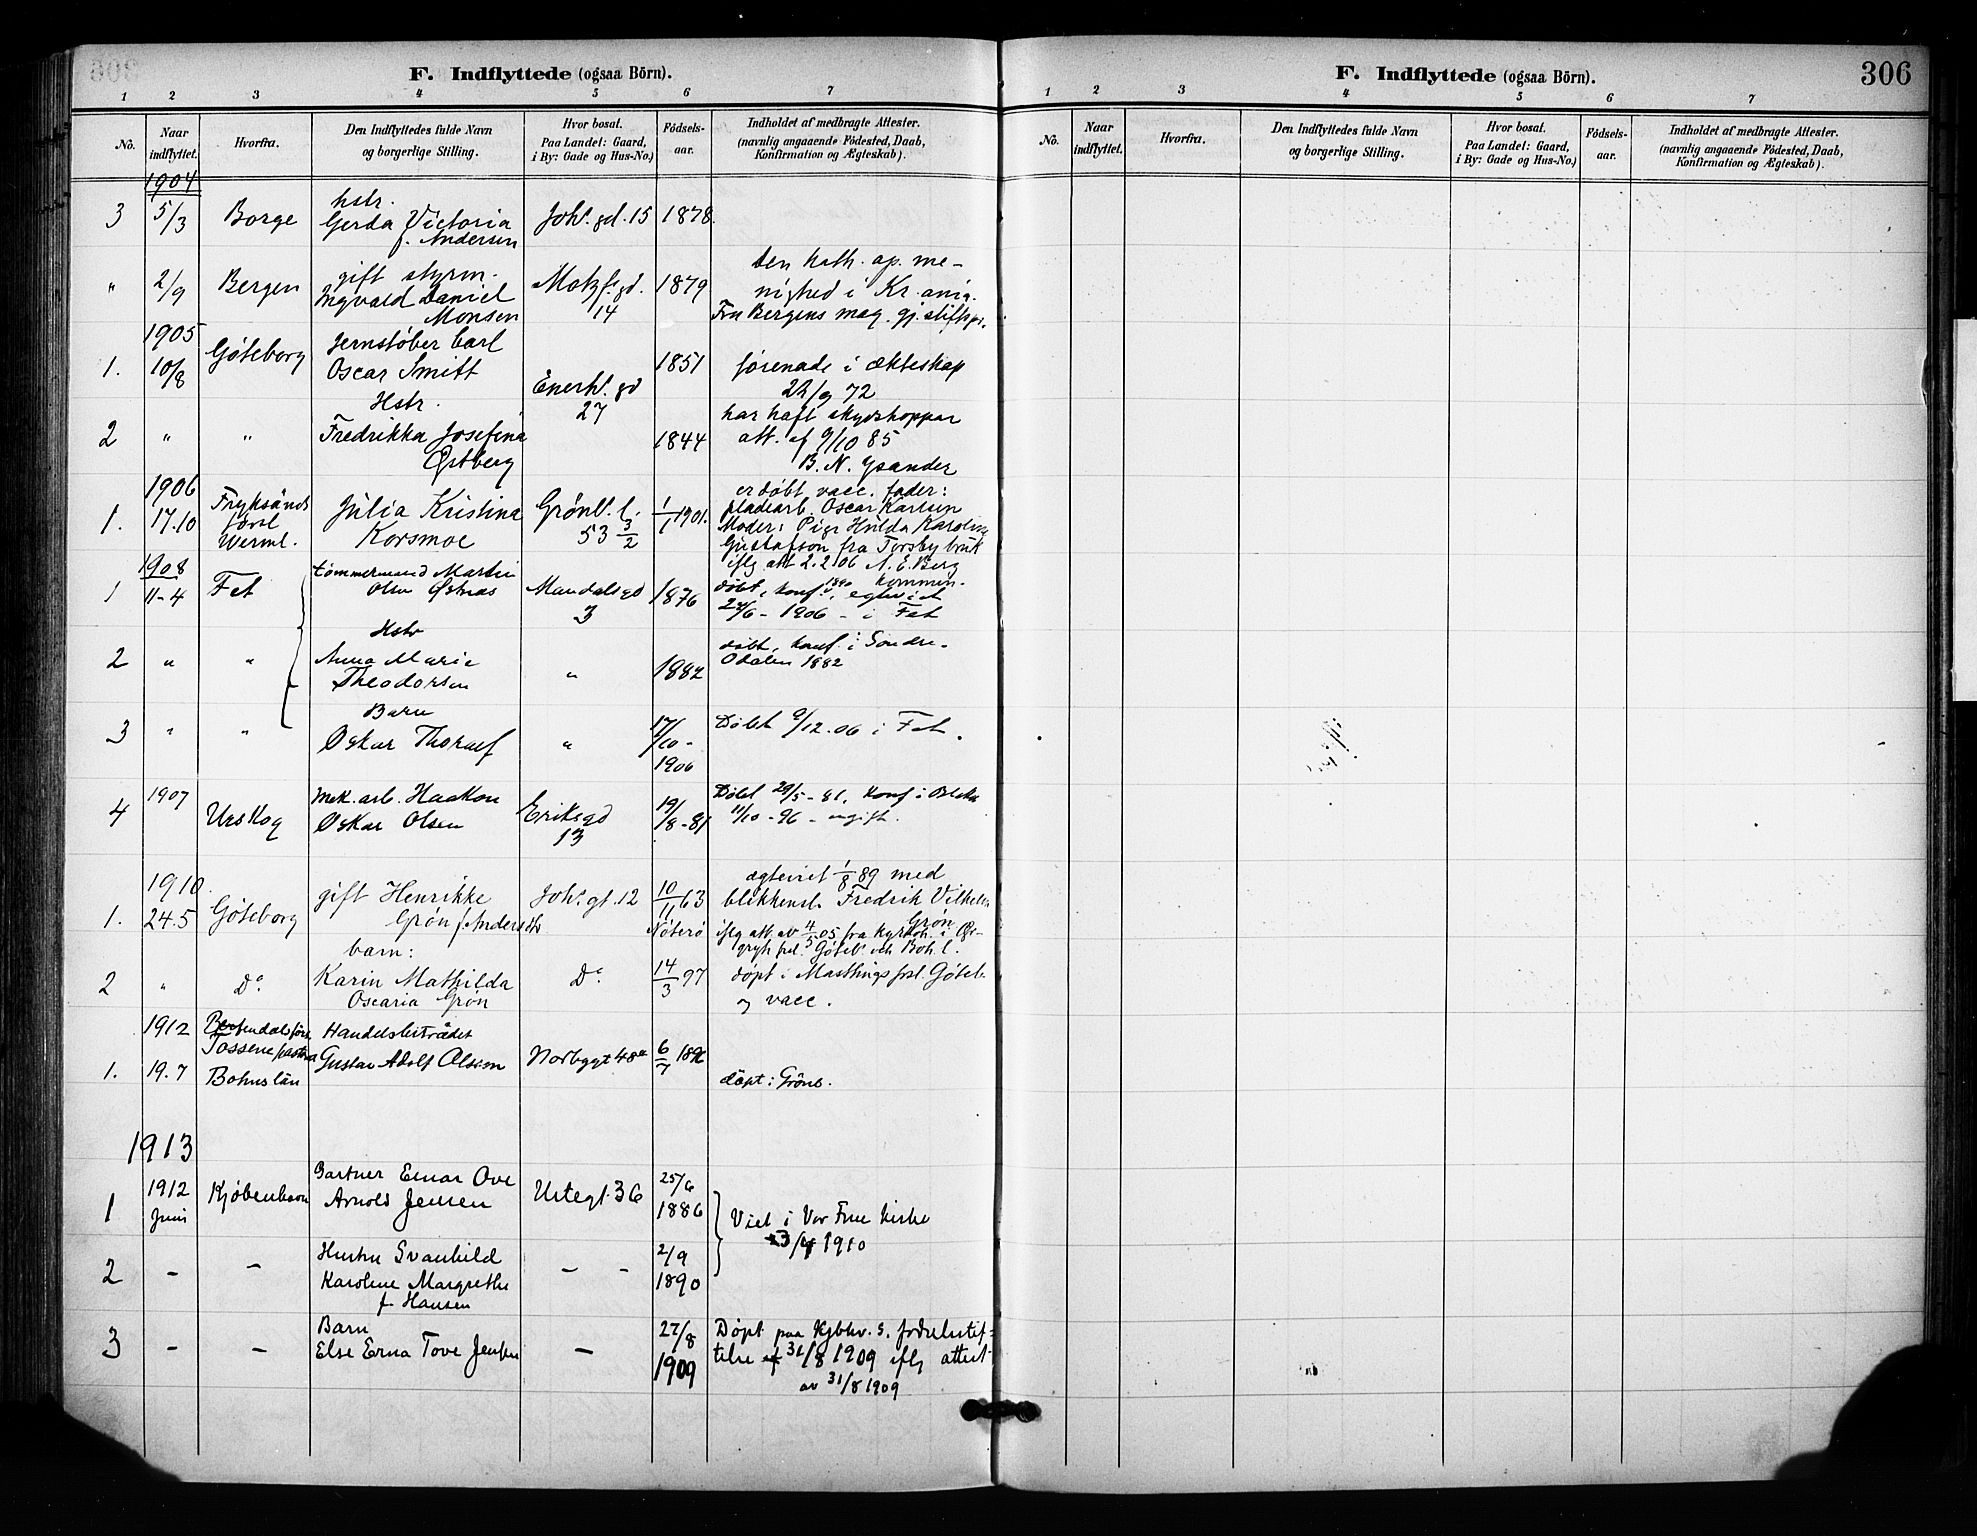 F. Indflyttede (ogsaa Börn).
1 2 3 4 5 6 7
No.
Naar indflyttet.
Hvorfra.
Den Indflyttedes fulde Navn
og borgerlige Stilling.
Hvor bosat.
Paa Landet: Gaard,
i By: Gade og Hus-No.)
Fódsels-
aar.
Indholdet af medbragte Attester.
(navnlig angaaende Födested, Daab,
Konfirmation og Ægteskab).
1904
hstr.
3 5/3 Borge Gerda Victoria Joh's. gd. 15 1878.
f. Andersen
gift styrm. Den kath. ap. me-
" 2/9 Bergen Ingvald Daniel Motzf. gd. 1879 nighed i Kr.ania.
Monsen 14 Fra Bergens mag.
1905 Jernstøber Carl
1. 10/8 Göteborg Oscar Smitt 1851 förenade i ækteskap
Enerh. gd 22/9 72
Hstr. 27 har haft skydskoppor
2 " " Fredrikka Josefina 1844 att. af 9/10 85
Östberg B. N. Ysander
1906 Fryksände er döbt, vacc. fader:
1. 17.10 Werml. Julia Kristina Grønl. l. 1/1 1901. pladearb. Oscar Karlsen
Korsmoe 53 3/2 Moder: Pige Hulda Karolina
Gustafson fra Torsby bruk
iflg att 2.2.06 A. E. Berg
1908 tømmermand Martin
1 11-4 Fet Olsen Østnes Mandalsgd 3 1876 døbt, konf. 1890, egteviet
27/6 - 1906 - i Fet
Hstr døbt, konf. i Søndre.
2 " " Anna Marie " 1882 Odalen 1882
Theodorsen
Barn
3 " " Oskar Thoralf " 17/10 - 1906 Døbt 9/12.06 i Fet.
4 1907 Urskog Mek. arb. Haakon Eriksgd 19/8-81 Døbt 29/5-81, konf i
Oskar Olsen 13 11/10-96 - ugift.
1910. ægteviet 1/8 89 med
1. 24.5 Göteborg gift Henrikke Joh's. gt. 12 10/11 63 blikkensl. Fredrik Vilhelm
Grøn f. Anders Nøterø Grøn
iflg att. av 4/5 05 fra
barn: Göteb. och Boh. l.
2 " Do. Karin Mathilda Do. 14/3 97 døpt i Masthugs Göteb.
Oscaria Grøn og vacc.
1912 Handelsbetrådet
Tossene
1. 19.7 Bohuslän Gustav Adolf Olsson Norbygt 48 6/7 döpt i
1913
1 1912 Juni Kjöbenhavn Gartner Einar Ove Urtegt. 36 25/6 1886
Arnold Jensen Viet i Vor Frue Kirke
1910
2 - - Hustru Svanhild - - 2/9 1890
Karoline Margrethe
f. Hansen
Barn
3 - - Else Erna Tove Jensen - 27/8 1909 Døpt paa Kjbhv. s. fødselsstif-
telse 31/8 1909 iflg attest
av 31/8 1909
F. Indflyttede (ogsaa Börn).
306
1 2 3 4 5 6 7
No.
Naar indflyttet.
Hvorfra.
Den Indflyttedes fulde Navn
og borgerlige Stilling.
Hvor bosat.
Paa Landet: Gaard,
i By: Gade og Hus-No.)
Fódsels-
aar.
Indholdet af medbragte Attester.
(navnlig angaaende Födested, Daab,
Konfirmation og Ægteskab).